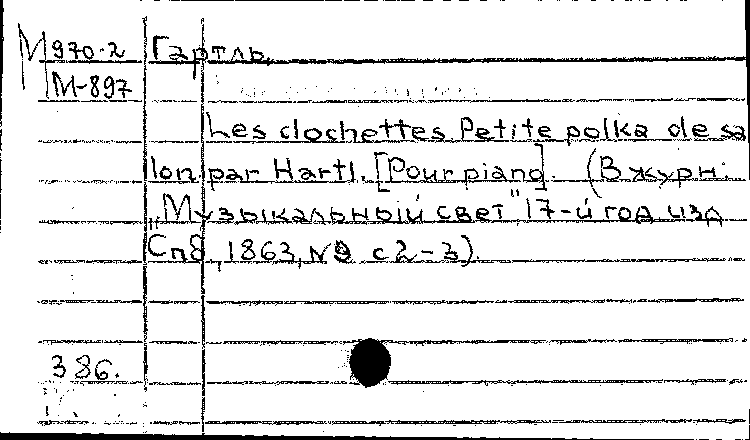 М 970-2 Гартль.
М-897
Les clochettes. Petite polka de sa
lon par Hartl. [Pour piano]. (В журн.:
„Музыкальный свет" 17-й год изд
Спб, 1863, № 9 с 2-3).
386.